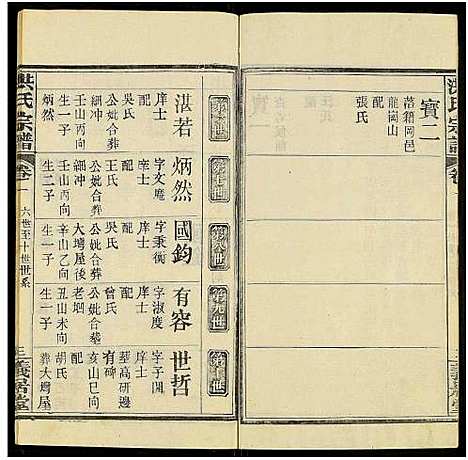 洪氏宗譜
卷
寶二
落籍岡邑
龍岡山
配
張氏
第六世
第七世
第八世
第九世
第十世
湛若
庠士
配
吳氏
公妣合葬
細沖
壬山丙向
生一子
炳然
炳然
字文庵
庠士
配
王氏
公妣合葬
細沖
壬山丙向
生二子
國鈞
字秉衡
庠士
配
公妣合葬
大塆屋後
辛山乙向
生一子
有容
字淑度
庠士
配
曾氏
公妣合葬
老垇
丑山未向
生一子
世哲
字子開
庠士
葬高研邊
有碑
亥山巳向
配
胡氏
葬大塆屋
洪氏宗譜
卷一
六世至十世世系
三義居堂